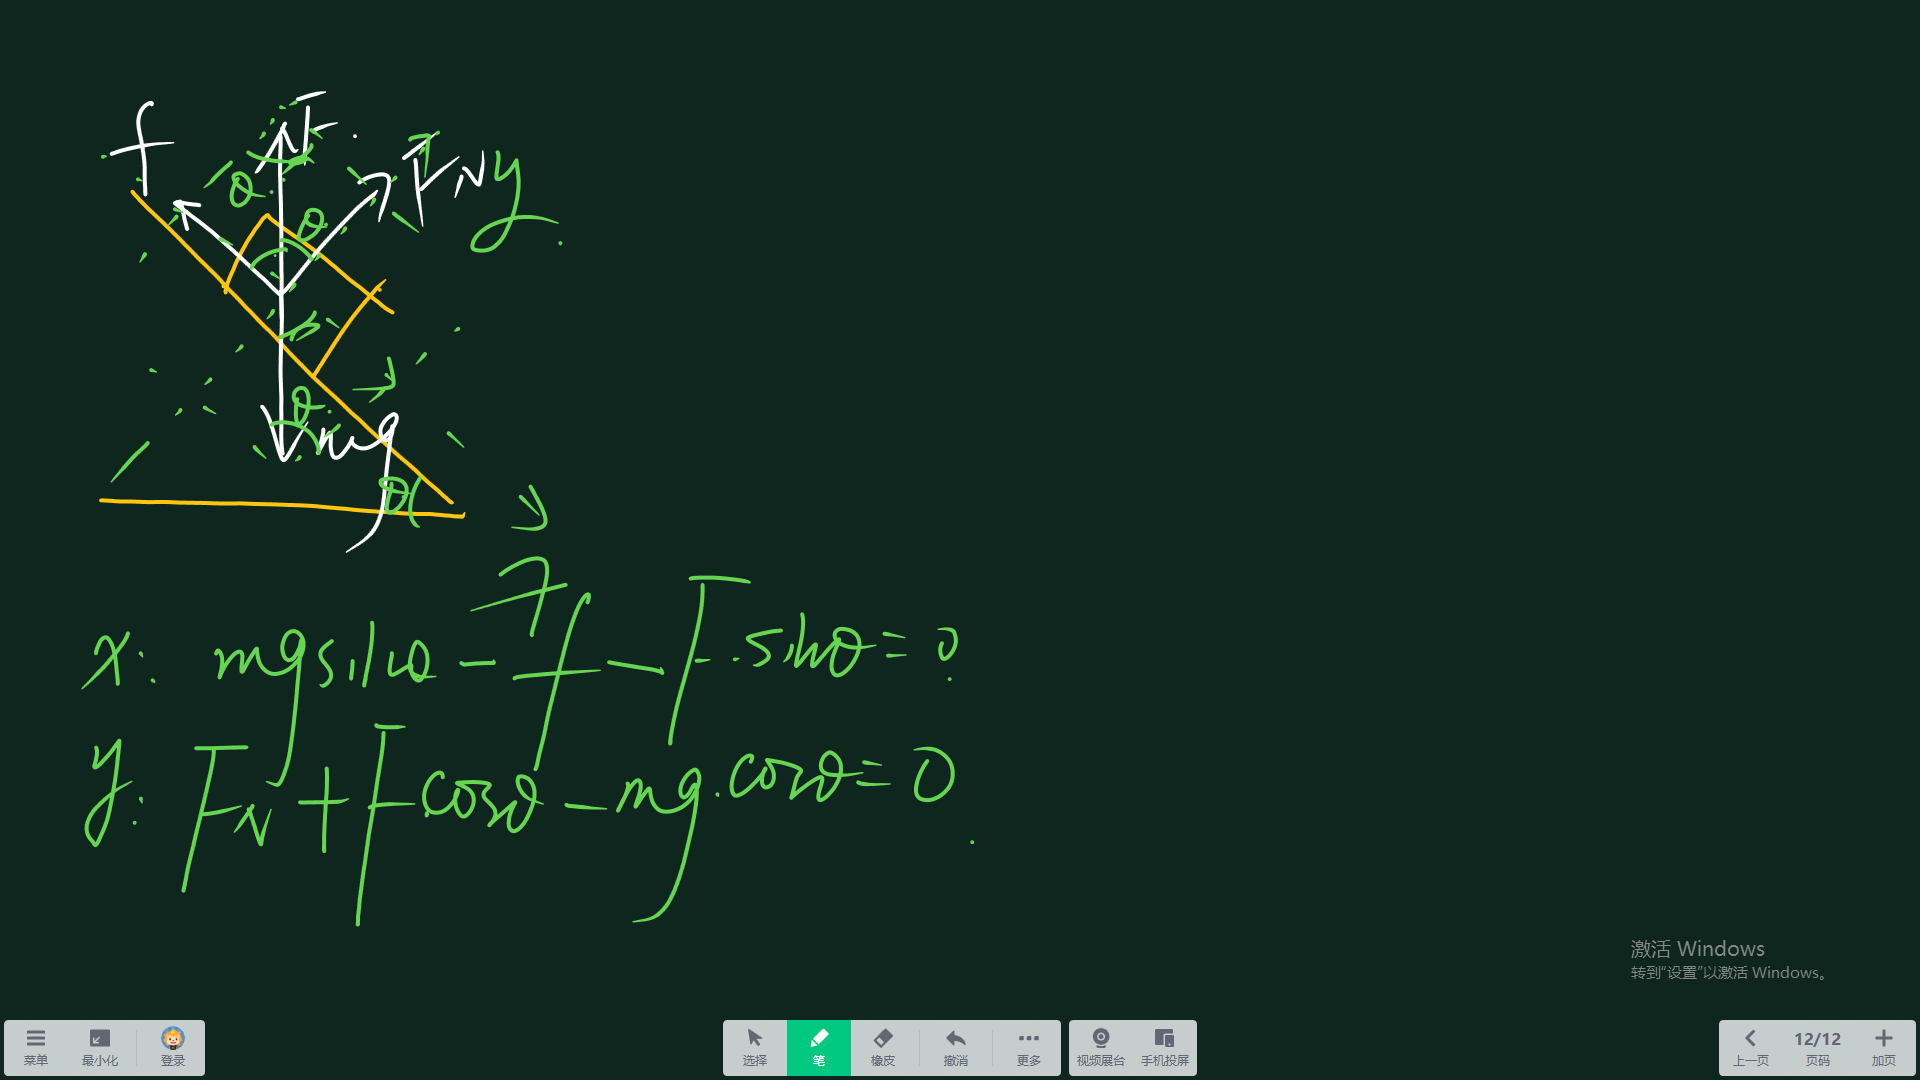 f
F
F_N y
θ
θ
θ
mg
θ
x
x: mgsinθ - f - F·sinθ = 0
y: F_N + Fcosθ - mg·cosθ = 0
激活 Windows
转到“设置”以激活 Windows。
菜单 最小化 登录 选择 笔 橡皮 撤消 更多 视频展台 手机投屏 上一页 12/12 页码 加页